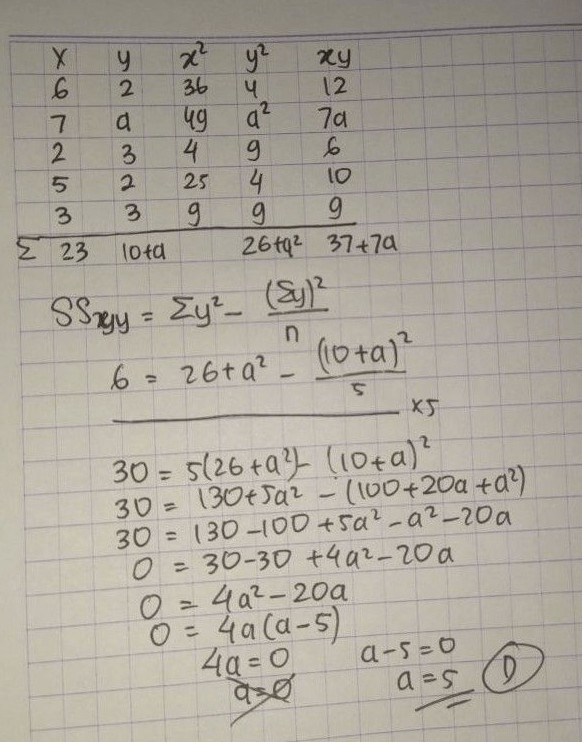 x y x² y² xy
6 2 36 4 12
7 a 49 a² 7a
2 3 4 9 6
5 2 25 4 10
3 3 9 9 9
Σ 23 10+a 26+a² 37+7a
SSyy = Σy² - (Σy)²/n
6 = 26+a² - (10+a)²/5
×5
30 = 5(26+a²)- (10+a)²
30 = 130+5a² - (100+20a+a²)
30 = 130-100+5a²-a²-20a
0 = 30-30 +4a²-20a
0 = 4a²-20a
0 = 4a(a-5)
4a=0 a-5=0
a=0 a=5 D